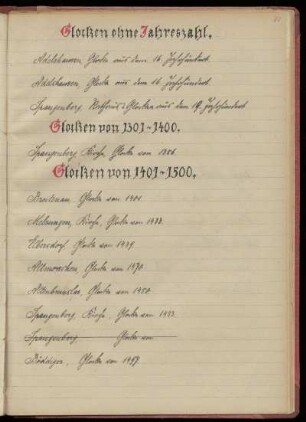 Glocken ohne Jahreszahl.
Adelshausen, Glocke aus dem 15. Jahrhundert
Adelshausen, Glocke aus dem 16. Jahrhundert
Spangenberg, Glocken aus dem 14. Jahrhundert
Glocken von 1301-1400.
Spangenberg Kirche, Glocke von
Glocken von 1401-1500.
Breitenau, Glocke von
Melsungen, Kirche, Glocke von
Elbersdorf Glocke von
Altmorschen, Glocke von 1470.
Altenbrunslar, Glocke von 1450.
Spangenberg Kirche, Glocke von
Spangenberg Glocke von
Böddiger, Glocke von 1457.